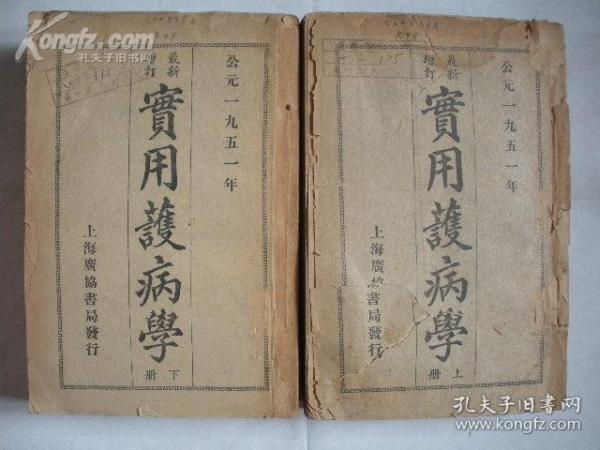 Kongfz.com
孔夫子旧书网
公元一九五一年
最新
增訂
實用護病學
下册
上海廣協書局發行
公元一九五一年
最新
增訂
實用護病學
上册
上海廣協書局發行
孔夫子旧书网
www.kongfz.com